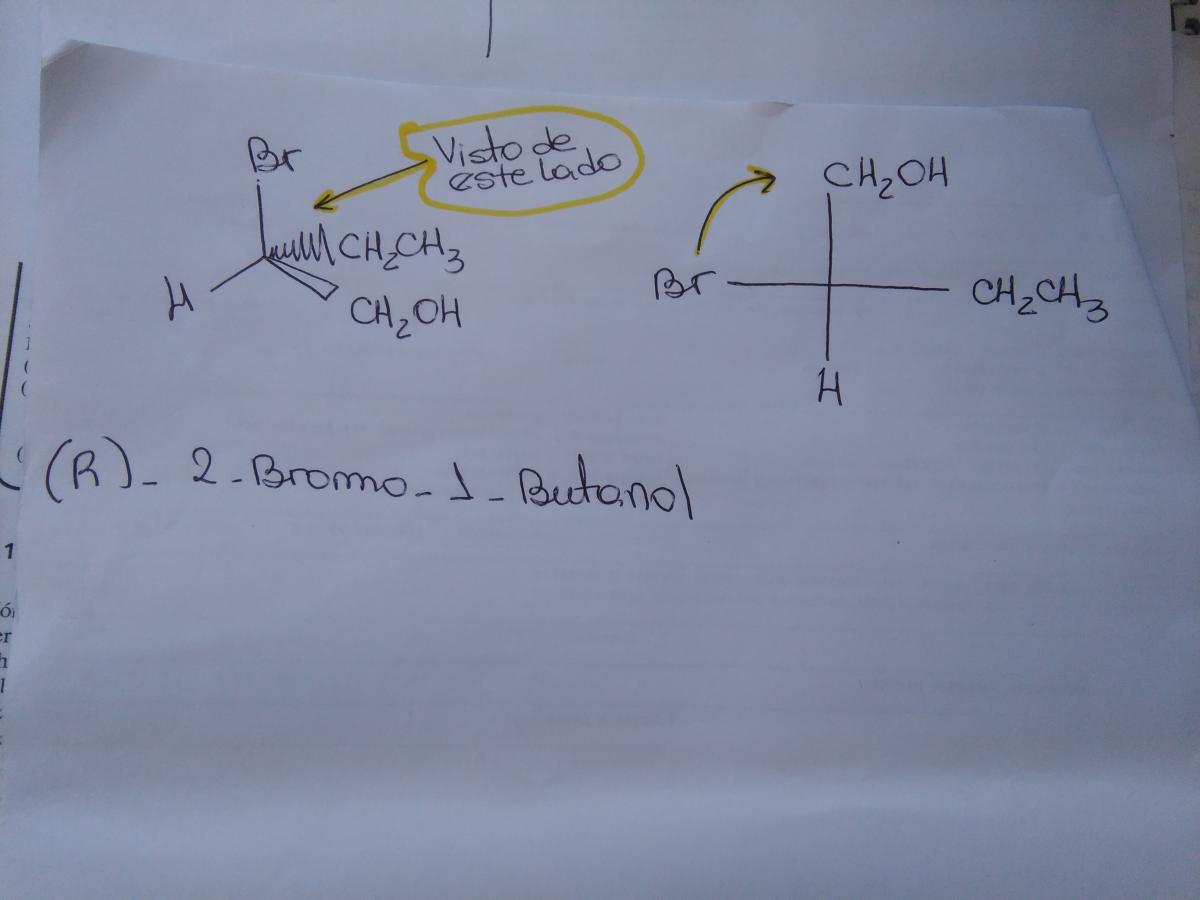 Br
Visto de
este lado
CH₂CH₃
H
CH₂OH
CH₂OH
Br
CH₂CH₃
H
(R)- 2-Bromo-1-Butanol
1